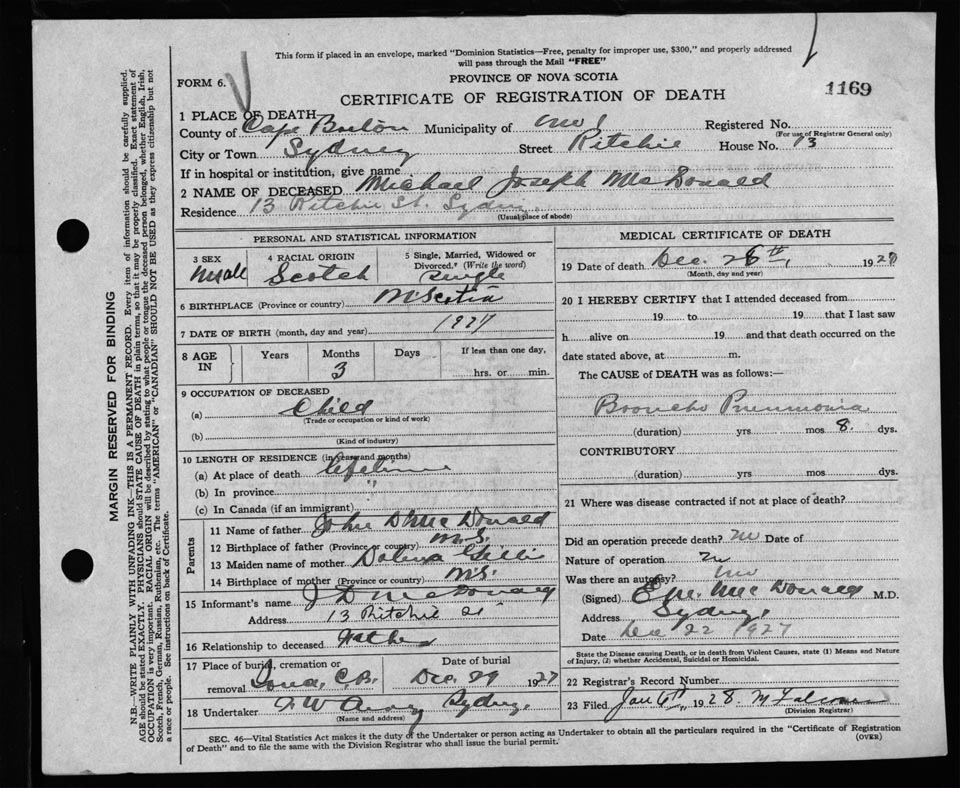 This form if placed in an envelope, marked "Dominion Statistics—Free, penalty for improper use, $300," and properly addressed
will pass through the Mail "FREE"
FORM 6.
PROVINCE OF NOVA SCOTIA
1169
CERTIFICATE OF REGISTRATION OF DEATH
1 PLACE OF DEATH
County of Cape Breton Municipality of Registered No.
(For use of Registrar General only)
City or Town Sydney Street Ritchie House No. 13
If in hospital or institution, give name
2 NAME OF DECEASED Michael Joseph McDonald
Residence 13 Ritchie St. Sydney
(Usual place of abode)
PERSONAL AND STATISTICAL INFORMATION
3 SEX Male
4 RACIAL ORIGIN Scotch
5 Single, Married, Widowed or Divorced. (Write the word) Single
6 BIRTHPLACE (Province or country) N Scotia
7 DATE OF BIRTH (month, day and year) 1927
8 AGE IN Years Months Days If less than one day,
3 hrs. or min.
9 OCCUPATION OF DECEASED
(a) Child
(Trade or occupation or kind of work)
(b)
(Kind of industry)
10 LENGTH OF RESIDENCE (in years and months)
(a) At place of death Lifetime
(b) In province "
(c) In Canada (if an immigrant)
Parents
11 Name of father John D McDonald
12 Birthplace of father (Province or country) N.S.
13 Maiden name of mother Gillis
14 Birthplace of mother (Province or country) N.S.
15 Informant's name J D McDonald
Address 13 Ritchie St
16 Relationship to deceased Father
17 Place of burial, cremation or removal Iona, C.B.
Date of burial Dec. 29 1927
18 Undertaker Sydney.
(Name and address)
MEDICAL CERTIFICATE OF DEATH
19 Date of death Dec. 26th, 1927
(Month, day and year)
20 I HEREBY CERTIFY that I attended deceased from
19 to 19 that I last saw
h alive on 19 and that death occurred on the
date stated above, at m.
The CAUSE of DEATH was as follows:—
Broncho Pneumonia
(duration) yrs mos 8 dys.
CONTRIBUTORY
(duration) yrs mos dys.
21 Where was disease contracted if not at place of death?
Did an operation precede death? No Date of
Nature of operation
Was there an autopsy? No
(Signed) McDonald M.D.
Address Sydney,
Date Dec 22 1927
State the Disease causing Death, or in death from Violent Causes, state (1) Means and Nature
of Injury, (2) whether Accidental, Suicidal or Homicidal.
22 Registrar's Record Number
23 Filed, Jan 1928.
(Division Registrar)
SEC. 46—Vital Statistics Act makes it the duty of the Undertaker or person acting as Undertaker to obtain all the particulars required in the "Certificate of Registration
of Death" and to file the same with the Division Registrar who shall issue the burial permit.
(OVER)
MARGIN RESERVED FOR BINDING
N.B.—WRITE PLAINLY WITH UNFADING INK—THIS IS A PERMANENT RECORD. Every item of information should be carefully supplied.
AGE should be stated EXACTLY. PHYSICIANS should STATE CAUSE OF DEATH in plain terms, so that it may be properly classified. Exact statement of
OCCUPATION is very important. RACIAL ORIGIN will be described by stating to what people or tongue the deceased person belonged, whether English, Irish,
Scotch, French, German, Russian, Ruthenian, etc. The terms "AMERICAN" or "CANADIAN" SHOULD NOT BE USED as they express citizenship but not
a race or people. See instructions on back of Certificate.